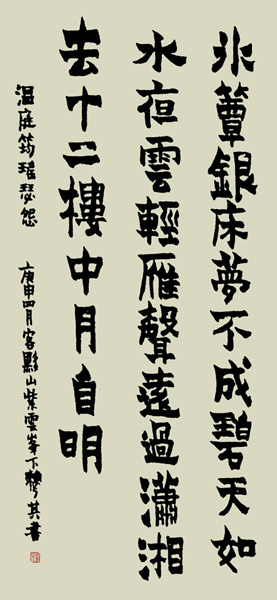 冰簟銀床夢不成碧天如
水夜雲輕雁聲遠過瀟湘
去十二樓中月自明
温庭筠瑤瑟怨 庚申四月客黟山紫雲峯下賴少其書